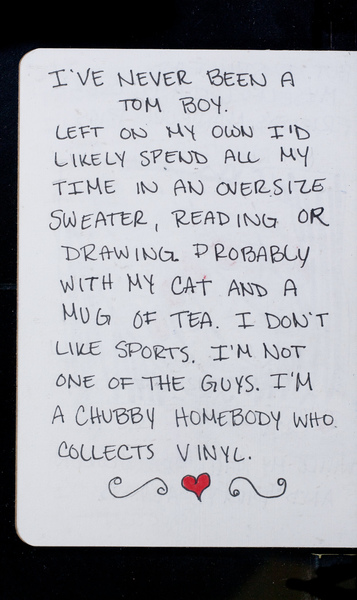 I'VE NEVER BEEN A
TOM BOY.
LEFT ON MY OWN I'D
LIKELY SPEND ALL MY
TIME IN AN OVERSIZE
SWEATER, READING OR
DRAWING. PROBABLY
WITH MY CAT AND A
MUG OF TEA. I DON'T
LIKE SPORTS. I'M NOT
ONE OF THE GUYS. I'M
A CHUBBY HOMEBODY WHO
COLLECTS VINYL.